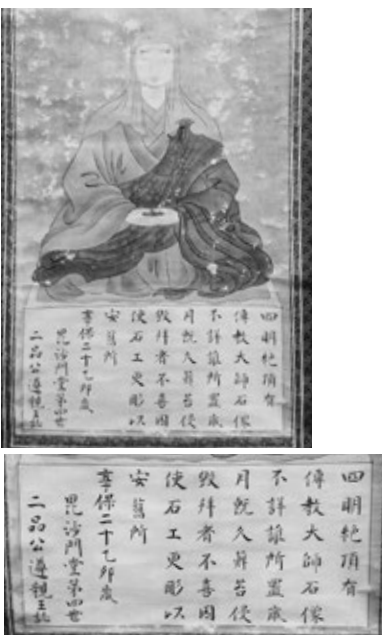 四明絶頂有
傳教大師石像
不詳誰所置歳
月既久苔侵
毀拜者不喜因
使石工更彫以
安舊所
享保二十乙卯歳
毘沙門堂第四世
二品公遵親王誌
四明絶頂有
傳教大師石像
不詳誰所置歳
月既久苔侵
毀拜者不喜因
使石工更彫以
安舊所
享保二十乙卯歳
毘沙門堂第四世
二品公遵親王誌